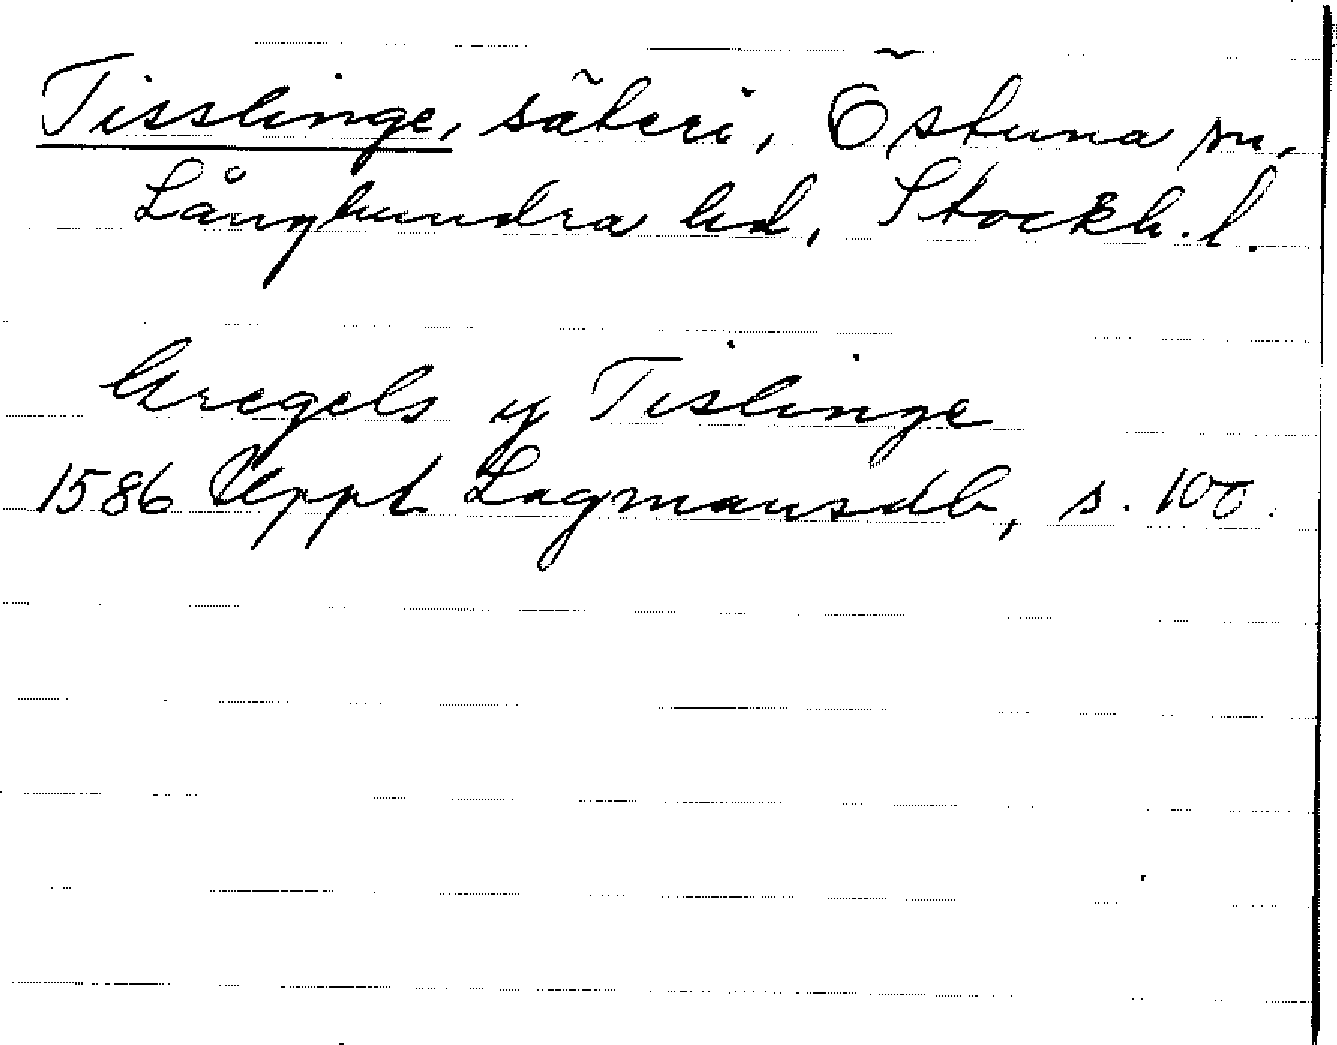 Tisslinge, säteri, Östuna sn,
Långhundra hd, Stockh. l.
Gregels y Tislinge
1586 Uppl Lagmansdb, s. 100.